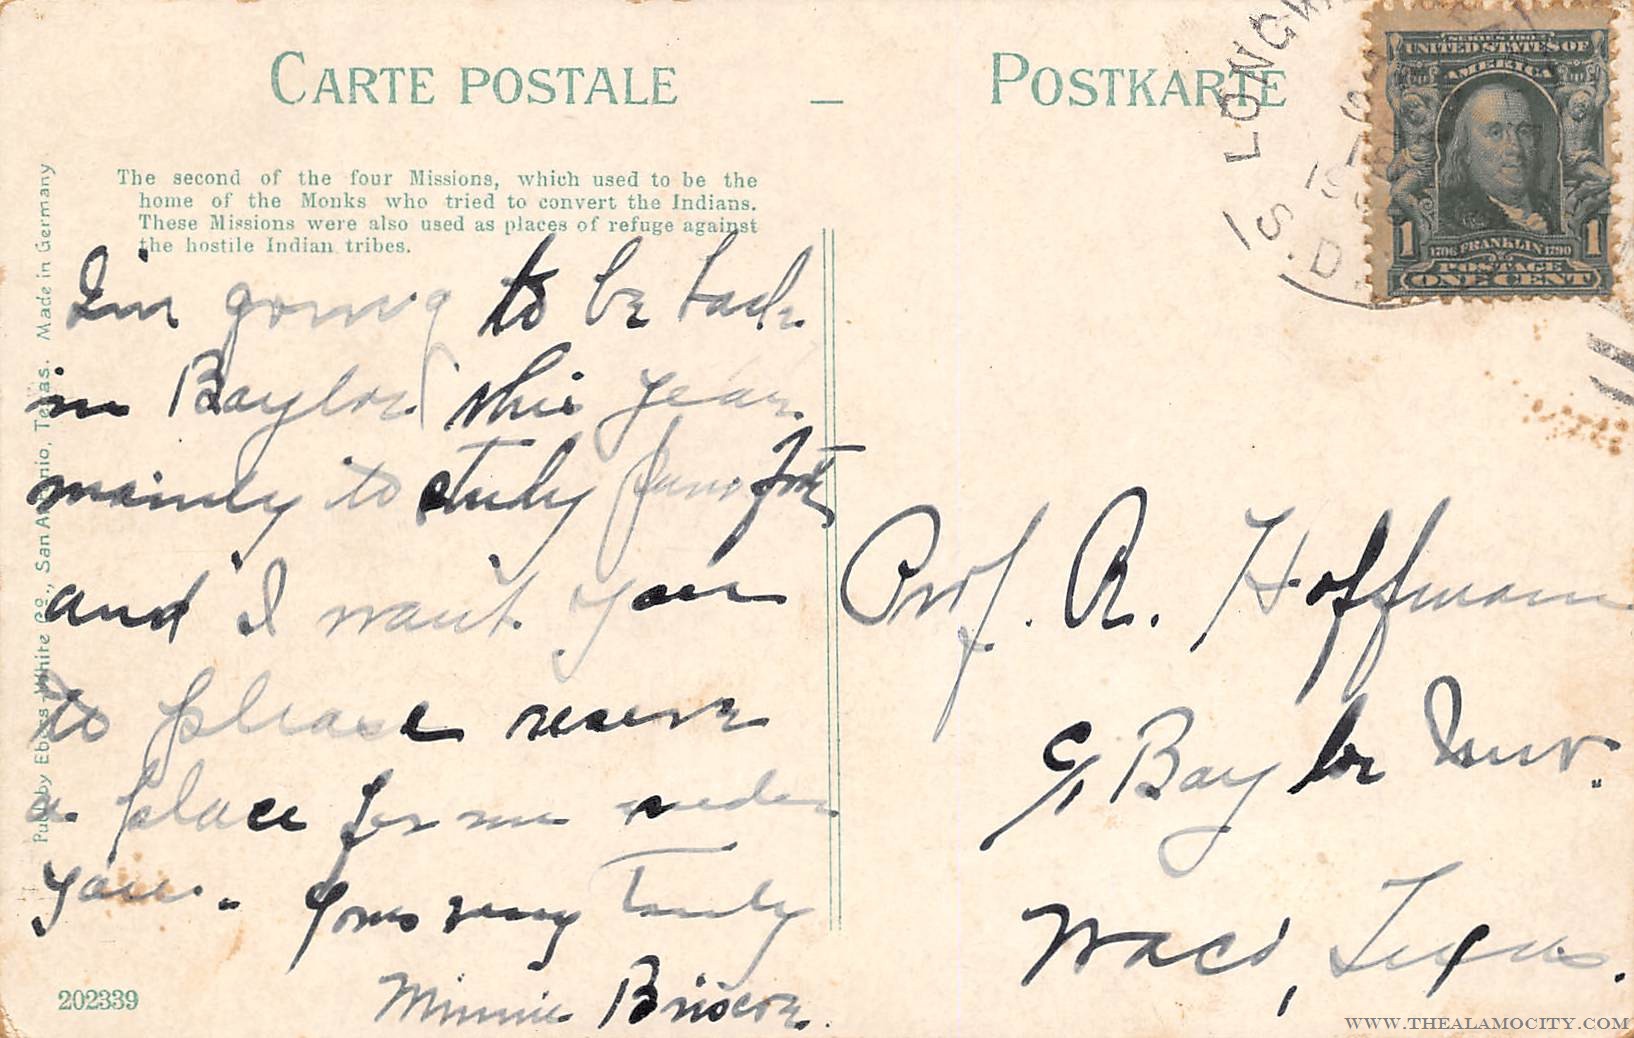 CARTE POSTALE — POSTKARTE
The second of the four Missions, which used to be the
home of the Monks who tried to convert the Indians.
These Missions were also used as places of refuge against
the hostile Indian tribes.
I'm going to be back
in Baylor this year
mainly to study
and I want you
to please reserve
a place for me under
you. Yours very Truly
Minnie Briscoe.
202339
Publ. by Ebers-White Co., San Antonio, Texas. Made in Germany
LONGV
S. D.
SERIES 1902
UNITED STATES OF
AMERICA
1 1706 FRANKLIN 1790 1
POSTAGE
ONE CENT
Prof. A. Hoffmann
c/ Baylor Univ.
Waco, Texas.
WWW.THEALAMOCITY.COM